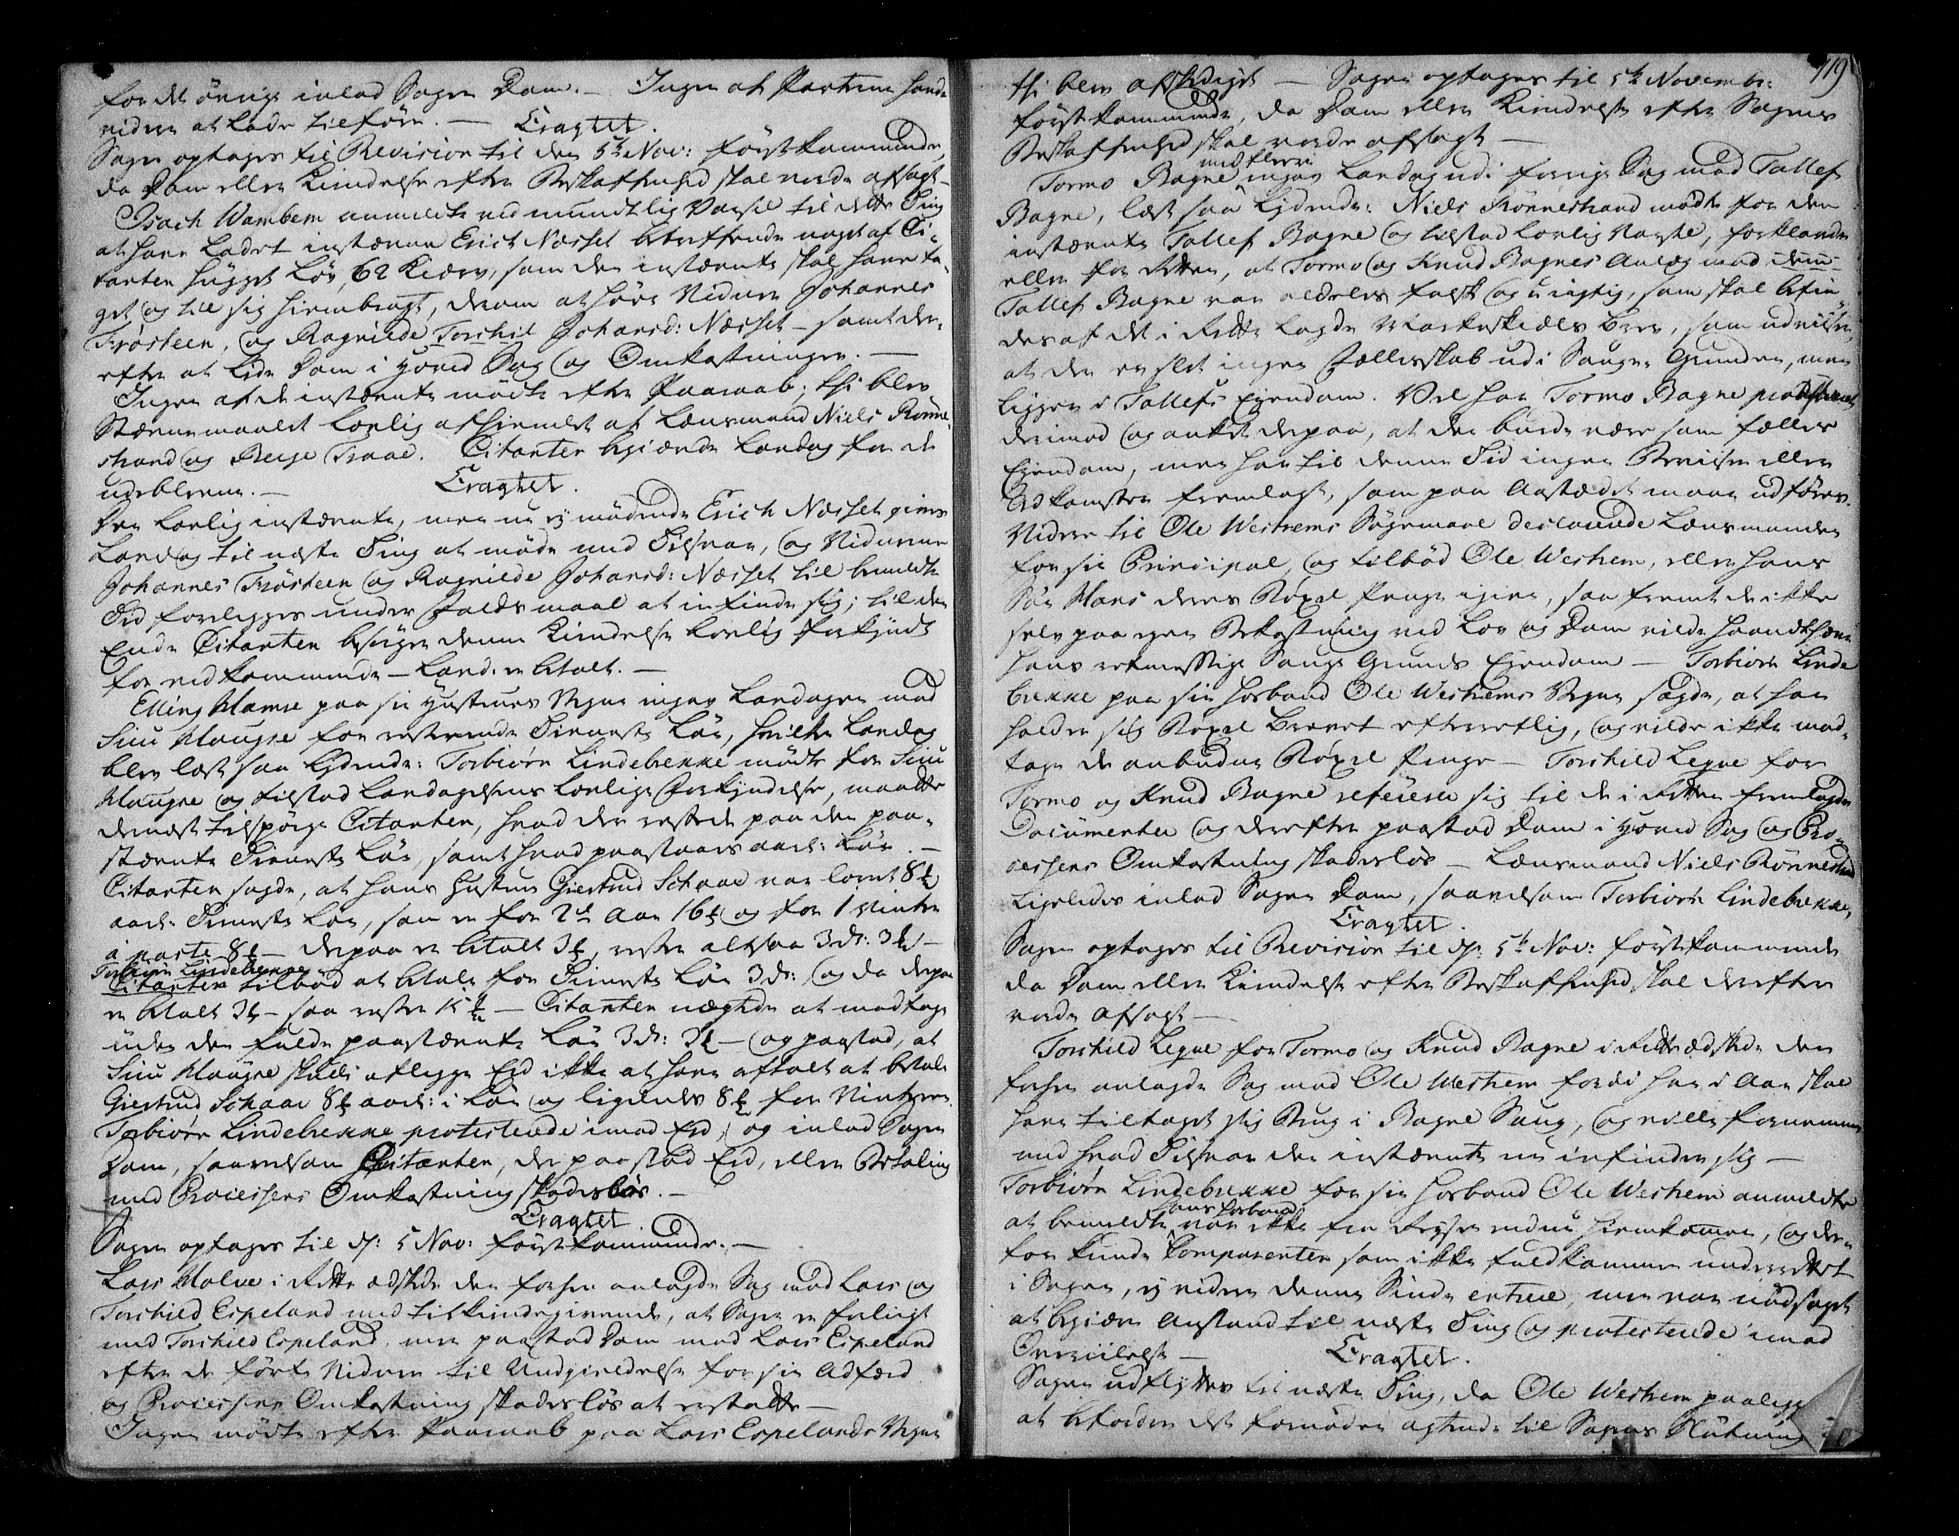 for det øvrige inlod Sagen Dom. — Ingen af Parterne hafde
videre at lade tilføre. — Eragtet.
Sagen optages til Revision til den 5te Nov: førstkommende,
da Dom eller Kiendelse efter Beskaffenhed skal vorde afsagt —
Isach Wambem anmeldte ved mundtlig Varsel til dette Ting
at have ladet instævne Erich Næsset betreffende noget af Ci-
tanten hugget Løv, 62 Kierv, som den instævnte skal have ta-
get og till sig hiembragt, derom at høre Vidner Johannes
Trøsteen, og Ragnilde Torchil Johansd: Næsset — samt der-
efter at lide Dom i Hoved Sag og Omkostninger. —
Ingen af de instævnte mødte efter Paaraab; thi blev
Stævnemaalet lovlig afhiemlet af Lænsmand Niels Rønne-
strand og Berge Traae. Citanten begiærede Laudag for de
udeblevne. — Eragtet.
Den lovlig instævnte, men nu ej mødende Erich Næsset gives
Laudag til næste Ting at møde med Tilsvar, og Vidnerne
Johannes Trøsteen og Ragnilde Johansd: Næsset til bemeldte
Tid forelegges under Faldsmaal at infinde sig; til den
Ende Citanten besørger denne Kiendelse lovlig forkyndt
for vedkommende — Laud: er betalt. —
Elling Hamre paa sin Hustrues Vegne ingav Laudagen mod
Siu Haugse for resterende Tieneste Løn, hvilken Laudag
blev læst saa lydende: Torbiørn Lindebrekke mødte for Siu
Haugse og tilstod Laudagelsens lovlige Forkyndelse, maatte
dernæst tilspørge Citanten, hvad der restede paa den paa-
stævnte Tieneste Løn, samt hvad paastaaes aarl: Løn. —
Citanten sagde, at hans Hustrue Giertrud Schaar var lovet 8
aarl: Tieneste Løn, som er for 2de Aar 16 og for 1 Vinter
à parte 8 — derpaa er betalt 3, rester altsaa 3 d: 3 —
Torbiørn Lindebrekke
Citanten tilbød at betale for Tieneste Løn 3 d: og da derpaa
er betalt 3 — saa rester 15 — Citanten nægtede at modtage
uden den fulde paastævnte Løn 3 d: 3 — og paastod, at
Siu Haugse skulde aflegge Eed ikke at have aftalt at betale
Giertrud Schaar 8 aarl: i Løn og ligeledes 8 for Vinteren
Torbiørn Lindebrekke protesterede imod Eed, og inlod Sagen
Dom, saavelsom Citanten, der paastod Eed, eller Betaling
med Processens Omkostning skadesløs. —
Eragtet.
Sagen optages til d: 5 Nov: førstkommende. —
Lars Molve i Rette ædskede den forhen anlagde Sag mod Lars og
Torchild Espeland med tilkiendegivende, at Sagen er forligt
med Torchild Espeland, men paastod Dom mod Lars Espeland
efter de førte Vidner til Undgieldelse for sin Adfærd
og Processens Omkostning skadesløs at erstatte —
Ingen mødte efter Paaraab paa Lars Espelands Vegne
119
thi blev afskediget — Sagen optages til 5te Novembr:
førstkommende, da Dom eller Kiendelse efter Sagens
Beskaffenhed skal vorde afsagt —
med fleere
Tormo Bagne ingav Laudag udi forrige Sag mod Tollef
Bagne, læst saa lydende: Niels Rønnestrand mødte for den
instævnte Tollef Bagne og tilstod lovlig Varsle, forklarede
ellers for Retten, at Tormo og Knud Bagnes Anlæg mod den
Tollef Bagne var aldeles falsk og urigtig, som skal befin-
des af det i Rette lagde Markeskiæls Brev, som udviser,
at der er slet ingen Fælleskab udi Sauge Grunden, men
ligger i Tollefs Eyendom. Vel har Tormo Bagne protesteret
derimod og anket derpaa, at der burde være som fælles
Eyendom, men har til denne Tid ingen Beviser eller
Adkomster fremlagt, som paa Aastædet maae udføres.
Videre til Ole Westrems Søgemaal declarerede Lænsmanden
for sin Principal, og tilbød Ole Westrem, eller hans
Søn Hans deres Røxel Penge igien, saa fremt de ikke
selv paa egen Bekostning ved Lov og Dom vilde haandthæve
hans retmessige Sauge Grunds Eyendom — Torbiørn Linde-
brekke paa sin Hosbond Ole Westrems Vegne sagde, at han
holder sig Røxel Brevet efterretlig, og vilde ikke mod-
tage de anbudne Røxel Penge — Torchild Legve for
Tormo og Knud Bagne refererede sig til de i Retten fremlagde
Documenter og derefter paastod Dom i Hoved Sag og Pro-
cessens Omkostning skadesløs — Lænsmand Niels Rønnestrand
ligeledes inlod Sagen Dom, saavelsom Torbiørn Lindebrekke,
Eragtet.
Sagen optages til Revision til d: 5te Nov: førstkommende
da Dom eller Kiendelse efter Beskaffenhed skal derefter
vorde afsagt —
Torchild Legve for Tormo og Knud Bagne i Rette ædskede den
forhen anlagde Sag mod Ole Westrem fordi han i Aar skal
have tiltaget sig Brug i Bagne Saug, og ville fornemme
med hvad Tilsvar den instævnte nu infinder sig —
Torbiørn Lindebrekke for sin Hosbond Ole Westrem anmeldte
hans Hosbond
at bemeldte var ikke fra Reysen endnu hiemkommen, og der-
for kunde Comparenten som ikke fuldkommen underrettet
i Sagen, ej videre denne Sinde entrere, men var nødsaget
at begiære Anstand til næste Ting og protesterede imod
Overiilelse — Eragtet.
Sagen udflyttes til næste Ting, da Ole Westrem paalegges
at besørge det fornøden agtende til Sagens Slutning